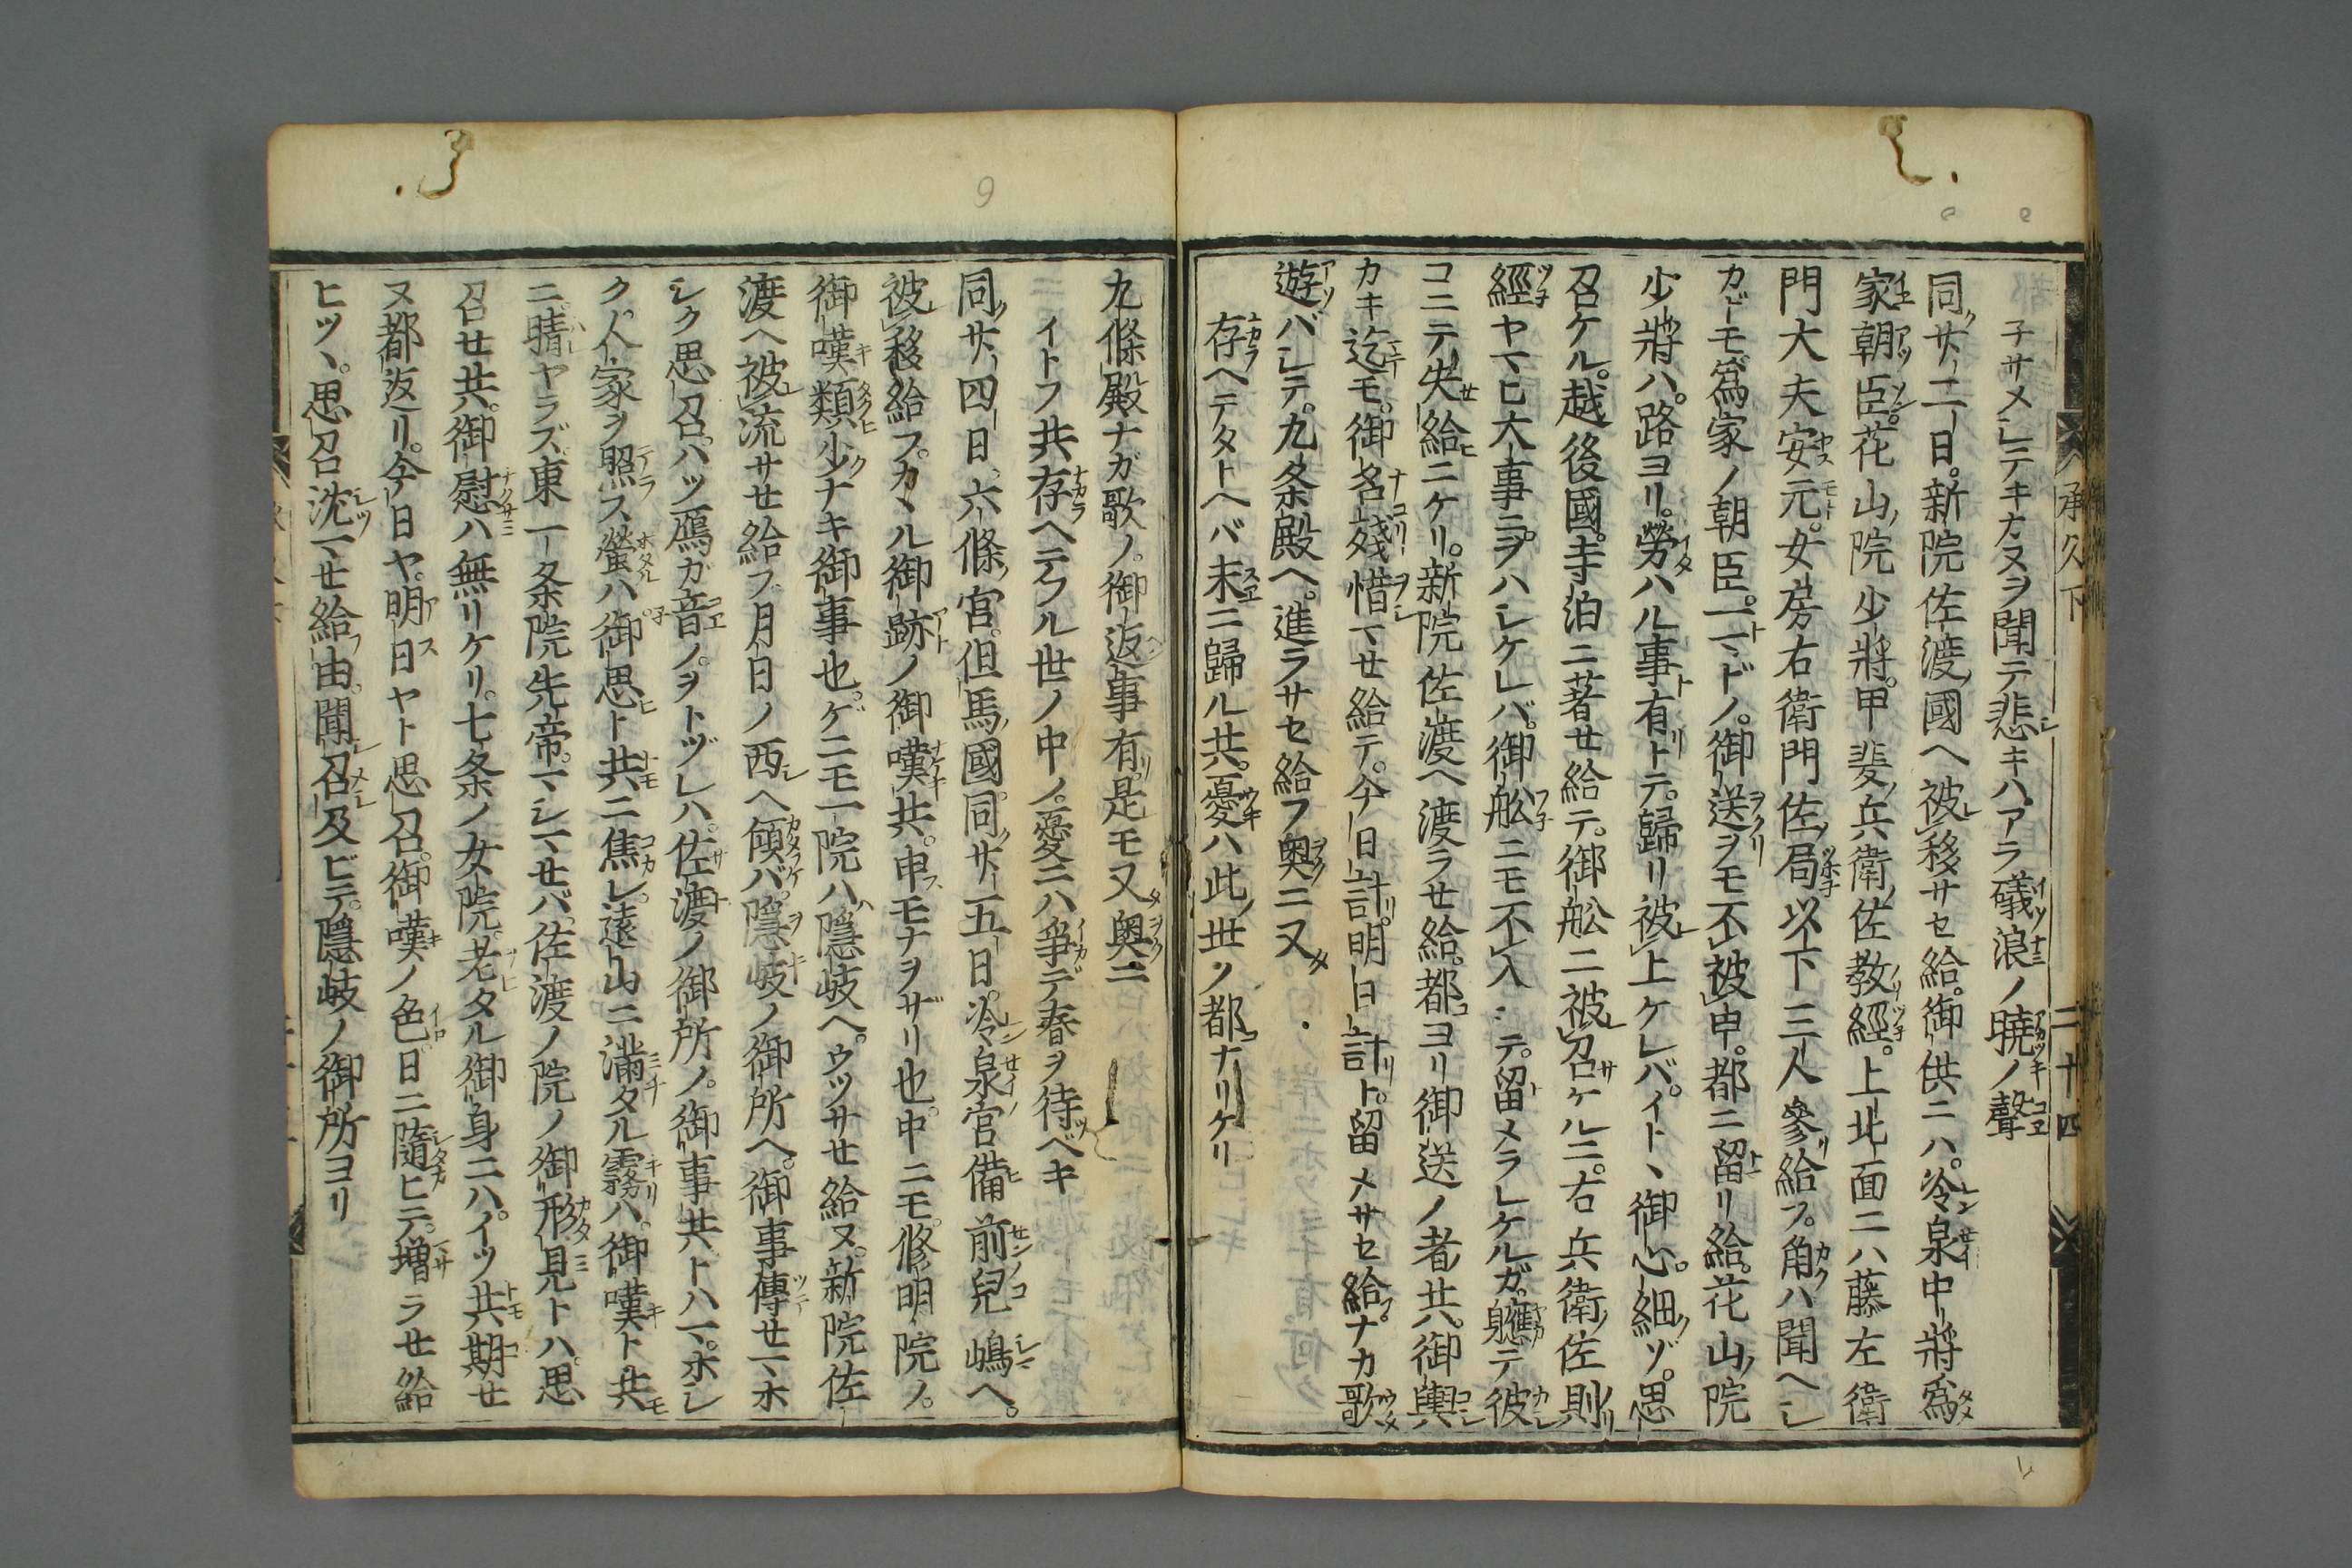 承久下
二十四
子サメシテキカヌヲ聞テ悲キハアラ礒浪ノ曉ノ聲
同廿二日。新院佐渡國ヘ被移サセ給。御供ニハ。冷泉中將爲
家朝臣。花山院少將。甲斐兵衛佐教經。上北面ニハ藤左衛
門大夫安元。女房右衛門佐局以下三人參給フ。角ハ聞ヘシ
カドモ。爲家ノ朝臣。一マドノ。御送ヲモ不被申。都ニ留リ給。花山院
少將ハ。路ヨリ。勞ハル事有トテ。歸リ被上ケレバ。イトヽ御心細ゾ。思
召ケル。越後國。寺泊ニ著せ給テ。御舩ニ被召ケルニ。右兵衛佐則
經ヤマヒ大事ニヲハシケレバ。御舩ニモ不入シテ。留メラレケルガ。軈テ彼
コニテ失給ニケリ。新院佐渡ヘ渡ラせ給。都ヨリ御送ノ者共。御輿
カキ迄モ。御名殘惜マせ給テ。今日計。明日計ト。留メサセ給。ナカ歌
遊バシテ。九条殿ヘ。進ラサセ給フ奥ニ又
存ヘテタトヘバ末ニ歸ル共。憂ハ此世ノ都ナリケリ
九條殿ナガ歌ノ。御返事有。是モ又奥ニ
イトフ共存ヘテフル世ノ中ノ。憂ニハ爭デ春ヲ待ベキ
同廿四日。六條宮。但馬國。同廿五日。冷泉宮備前兒嶋ヘ。
被移給フ。カヽル御跡ノ御嘆共。申モナヲザリ也。中ニモ。修明院ノ。
御嘆類少ナキ御事也。ゲニモ一院ハ。隱岐ヘ。ウツサせ給ヌ。新院佐
渡ヘ被流サせ給フ。月日ノ西ヘ傾バ。隱岐ノ御所ヘ。御事傳せマホ
シク思召。ハツ鴈ガ音ノ。ヲトヅレハ。佐渡ノ御所ノ。御事共トハマ。ホシ
ク。人家ヲ照ス螢ハ御思ト共ニ焦レ。遠山ニ滿タル霧ハ。御嘆ト共
ニ。晴ヤラズ。東一条院先帝。マシマせバ。佐渡ノ院ノ御形見トハ。思
召せ共。御慰ハ無リケリ。七条ノ女院。老タル御身ニハ。イツ共期せ
ヌ都返リ。今日ヤ。明日ヤト思召。御嘆ノ色。日ニ隨ヒテ。増ラせ給
ヒツヽ。思召沈マせ給由。聞召及ビテ。隱岐ノ御所ヨリ